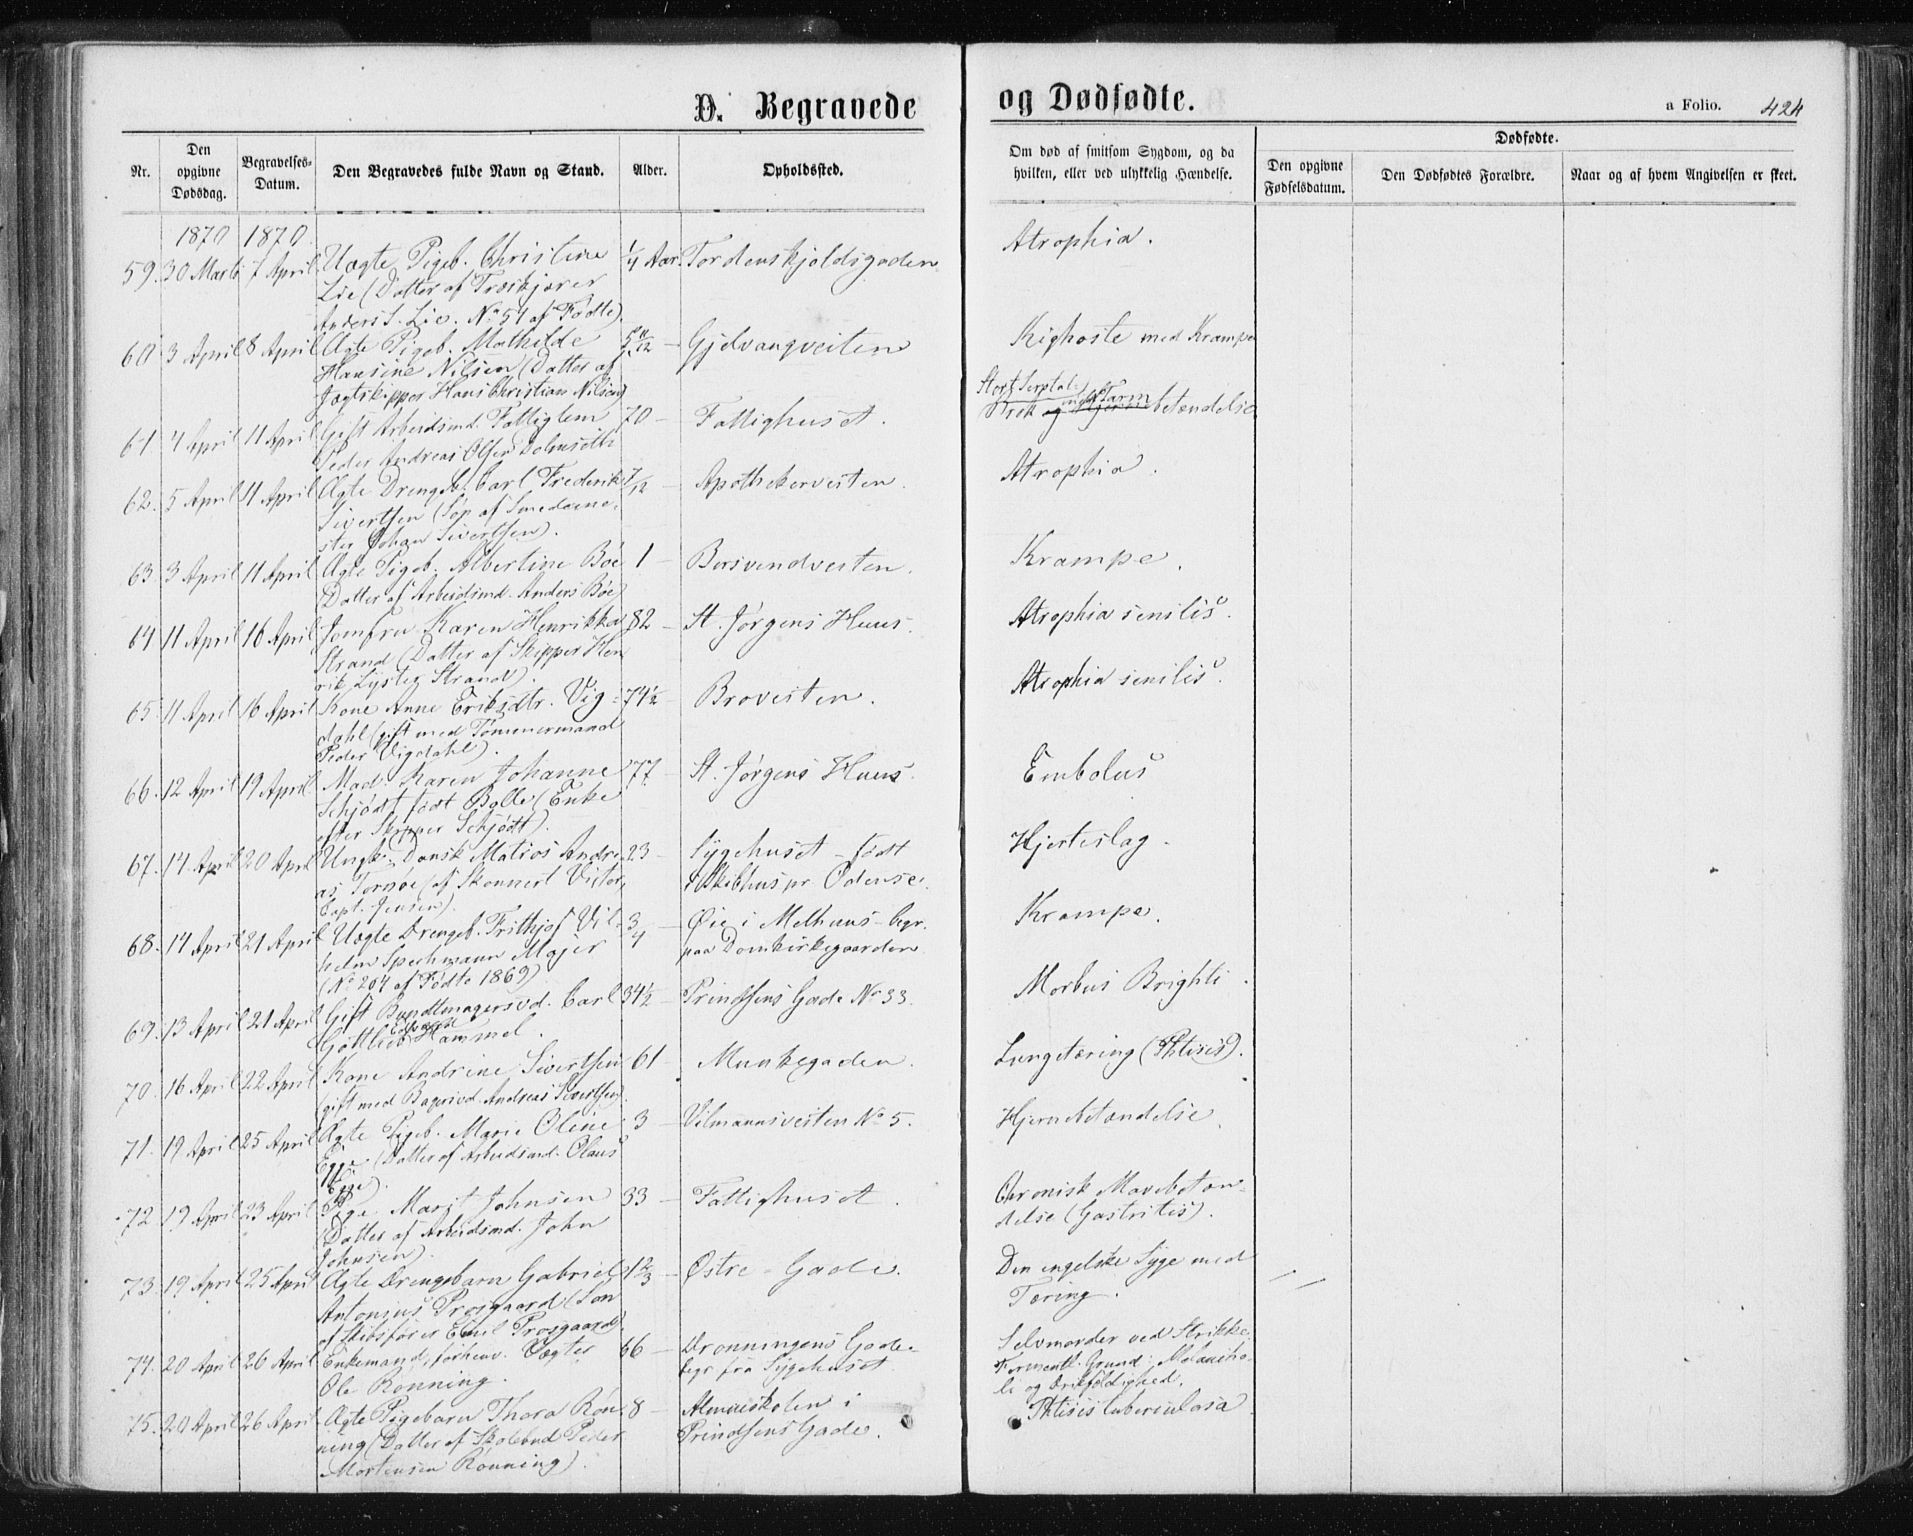 D. Begravede og Dødfødte.
a Folio. 424
Nr.
Den opgivne Dødsdag.
Begravelses-Datum.
Den Begravedes fulde Navn og Stand.
Alder.
Opholdssted.
Om død af smitsom Sygdom, og da hvilken, eller ved ulykkelig Hændelse.
Dødfødte.
Den opgivne Fødselsdatum.
Den Dødfødtes Forældre.
Naar og af hvem Angivelsen er skeet.
1870 1870
59. 30 Marts 7 April Uægte Pigeb. Christine 1/4 Aar. Tordenskjoldsgaden Atrophia.
Lie (Datter af Træskjærer
Anders S. Lie. No 54 af Fødte)
60 3 April 8 April Ægte Pigeb. Mathilde 5 11/12 — Gjelvangveiten Kighoste med Krampe
Hansine Nilsen (Datter af
Jægtskipper Hans Christian Nilsen)
61 4 April 11 April Gift Arbeidsmd. Fattiglem 70 — Fattighuset. Brok og med Tarmbetændelse
Peder Andreas Olsen Dolmseth
62. 5 April 11 April Ægte Drengeb. Carl Frederik 7/12 — Apothekerveiten. Atrophia.
Sivertsen (Søn af Smedeme-
ster Johan Sivertsen).
63. 3 April 11 April Ægte Pigeb. Albertine Böe 1 — Bersvendveiten. Krampe.
(Datter af Arbeidsmd. Anders Böe)
64 11 April 16 April Jomfru Karen Henrikka 82 — St. Jørgens Huus. Atrophia senilis.
Strand (Datter af Skipper Hen
rik Lyster Strand).
65. 11 April 16 April Kone Anne Eriksdtr. Vig- 74 1/2 — Broveiten. Atrophia senilis.
dahl (gift med Tømmermand
Peder Vigdahl).
66. 12 April 19 April Mad. Karen Johanne 77 — St. Jørgens Huus. Embolus
Schjödt født Balle (Enke
efter Skipper Schjödt).
67. 14 April 20 April Ungk. Dansk Matros Andre- 23 — Sygehuset — født Hjerteslag.
as Tornöe (af Skonnert Victor, i Skibhus pr. Odense.
Capt. Jensen).
68. 14 April 21 April Uægte Drengeb. Frithjof Vil- 3/4 Øie i Melhuus — begr. Krampe.
helm Spechmann Majer paa Domkirkegaarden
(No 204 af Fødte 1869)
69. 13 April 21 April Gift Bundtmagersvd. Carl 34 1/2 — Prindsens Gade No 33. Morbus Brighti.
Gottlieb Edvard Hammel.
70. 16 April 22 April Kone Andrine Sivertsen 61 — Munkegaden. Lungetæring (Phtisis).
(gift med Bagersvd. Andreas Sivertsen)
71. 19 April 25 April Ægte Pigeb. Marie Oline 3 — Vilmannsveiten No 5. Hjernebetændelse.
Egge (Datter af Arbeidsmd. Olaus
Egge).
72 19 April 23 April Pige Marj. Johnsen 33 — Fattighuset. Chronisk Mavebetæn-
(Datter af Arbeidsmd. John delse (Gastritis).
Johnsen).
73. 19 April 25 April Ægte Drengebarn Gabriel 1 2/3 — Østre Gade. Den engelske Syge med
Antonius Prosgaard (Søn Tæring.
af Skibsfører Emil Prosgaard).
74. 20 April 26 April Enkemand, forhenv. Vægter 66 — Dronningens Gade. Selvmorder ved Strikke.
Ole Rönning. begr. fra Sygehuset. Formentl. Grund: Melancho-
li og Ærefrygtighed.
75. 20 April 26 April Ægte Pigebarn Thora Rön- 8 — Almueskolen i Phtisis tuberculosa
ning (Datter af Skolebud Peder Prindsens Gade.
Mortensen Rönning).